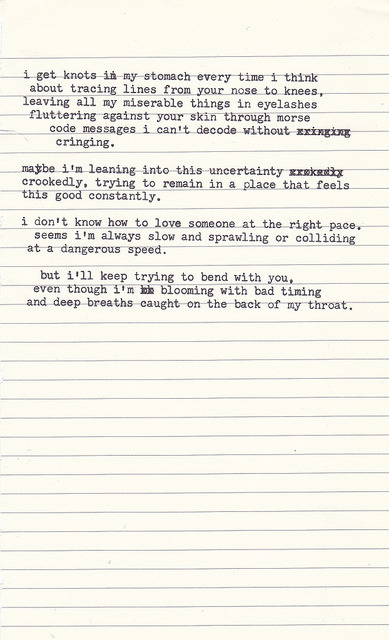 i get knots in my stomach every time i think
about tracing lines from your nose to knees,
leaving all my miserable things in eyelashes
fluttering against your skin through morse
code messages i can't decode without
cringing.
maybe i'm leaning into this uncertainty
crookedly, trying to remain in a place that feels
this good constantly.
i don't know how to love someone at the right pace.
seems i'm always slow and sprawling or colliding
at a dangerous speed.
but i'll keep trying to bend with you,
even though i'm blooming with bad timing
and deep breaths caught on the back of my throat.